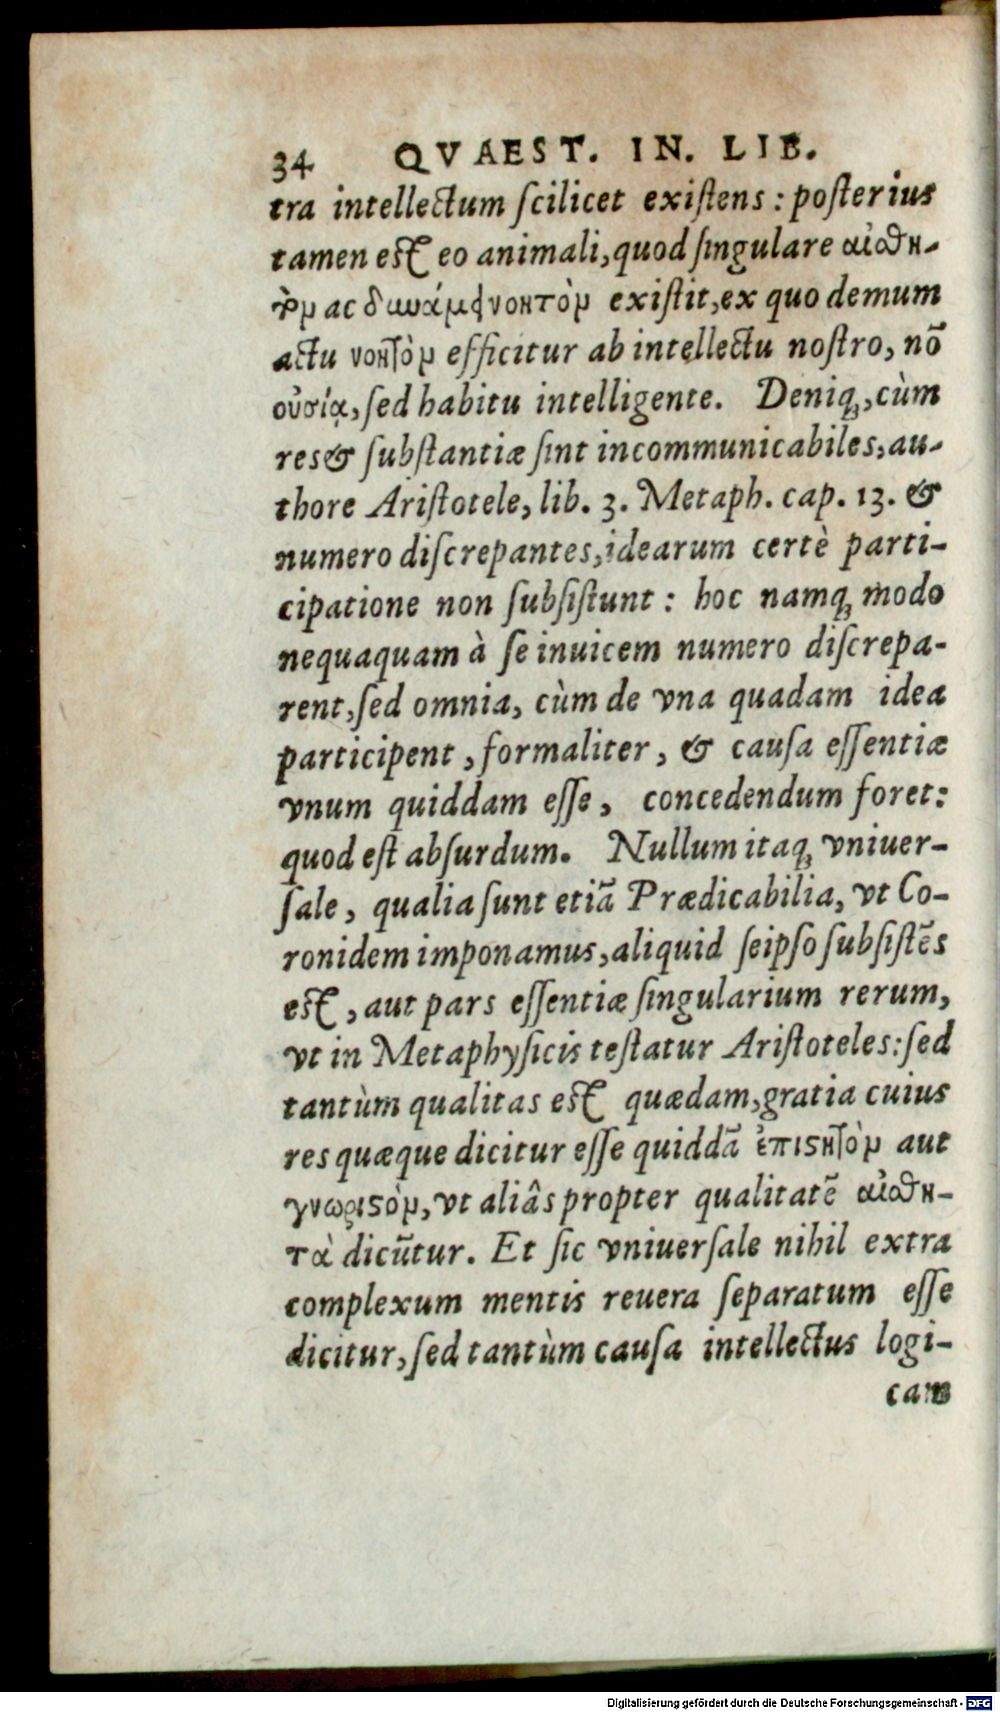 34 QVAEST. IN. LIB.
tra intellectum ſcilicet exiſtens : poſterius
tamen eſt eo animali, quod ſingulare αἰσθη-
τὸν ac δυνάμει νοητὸν exiſtit, ex quo demum
actu νοητὸν efficitur ab intellectu noſtro, nō
οὐσίᾳ, ſed habitu intelligente. Deniqꝫ, cùm
res & ſubſtantiæ ſint incommunicabiles, au-
thore Ariſtotele, lib. 3. Metaph. cap. 13. &
numero diſcrepantes, idearum certè parti-
cipatione non ſubſiſtunt : hoc namqꝫ modo
nequaquam à ſe inuicem numero diſcrepa-
rent, ſed omnia, cùm de vna quadam idea
participent, formaliter, & cauſa eſſentiæ
vnum quiddam eſſe, concedendum foret:
quod eſt abſurdum. Nullum itaqꝫ vniuer-
ſale, qualia ſunt etiā Prædicabilia, vt Co-
ronidem imponamus, aliquid ſeipſo ſubſiſtēs
eſt, aut pars eſſentiæ ſingularium rerum,
vt in Metaphyſicis teſtatur Ariſtoteles: ſed
tantùm qualitas eſt quædam, gratia cuius
res quæque dicitur eſſe quiddā ἐπιϛητὸν aut
γνωριϛὸν, vt aliâs propter qualitatē αἰσθη-
τὰ dicūtur. Et ſic vniuerſale nihil extra
complexum mentis reuera ſeparatum eſſe
dicitur, ſed tantùm cauſa intellectus logi-
cam
Digitalisierung gefördert durch die Deutsche Forschungsgemeinschaft - DFG